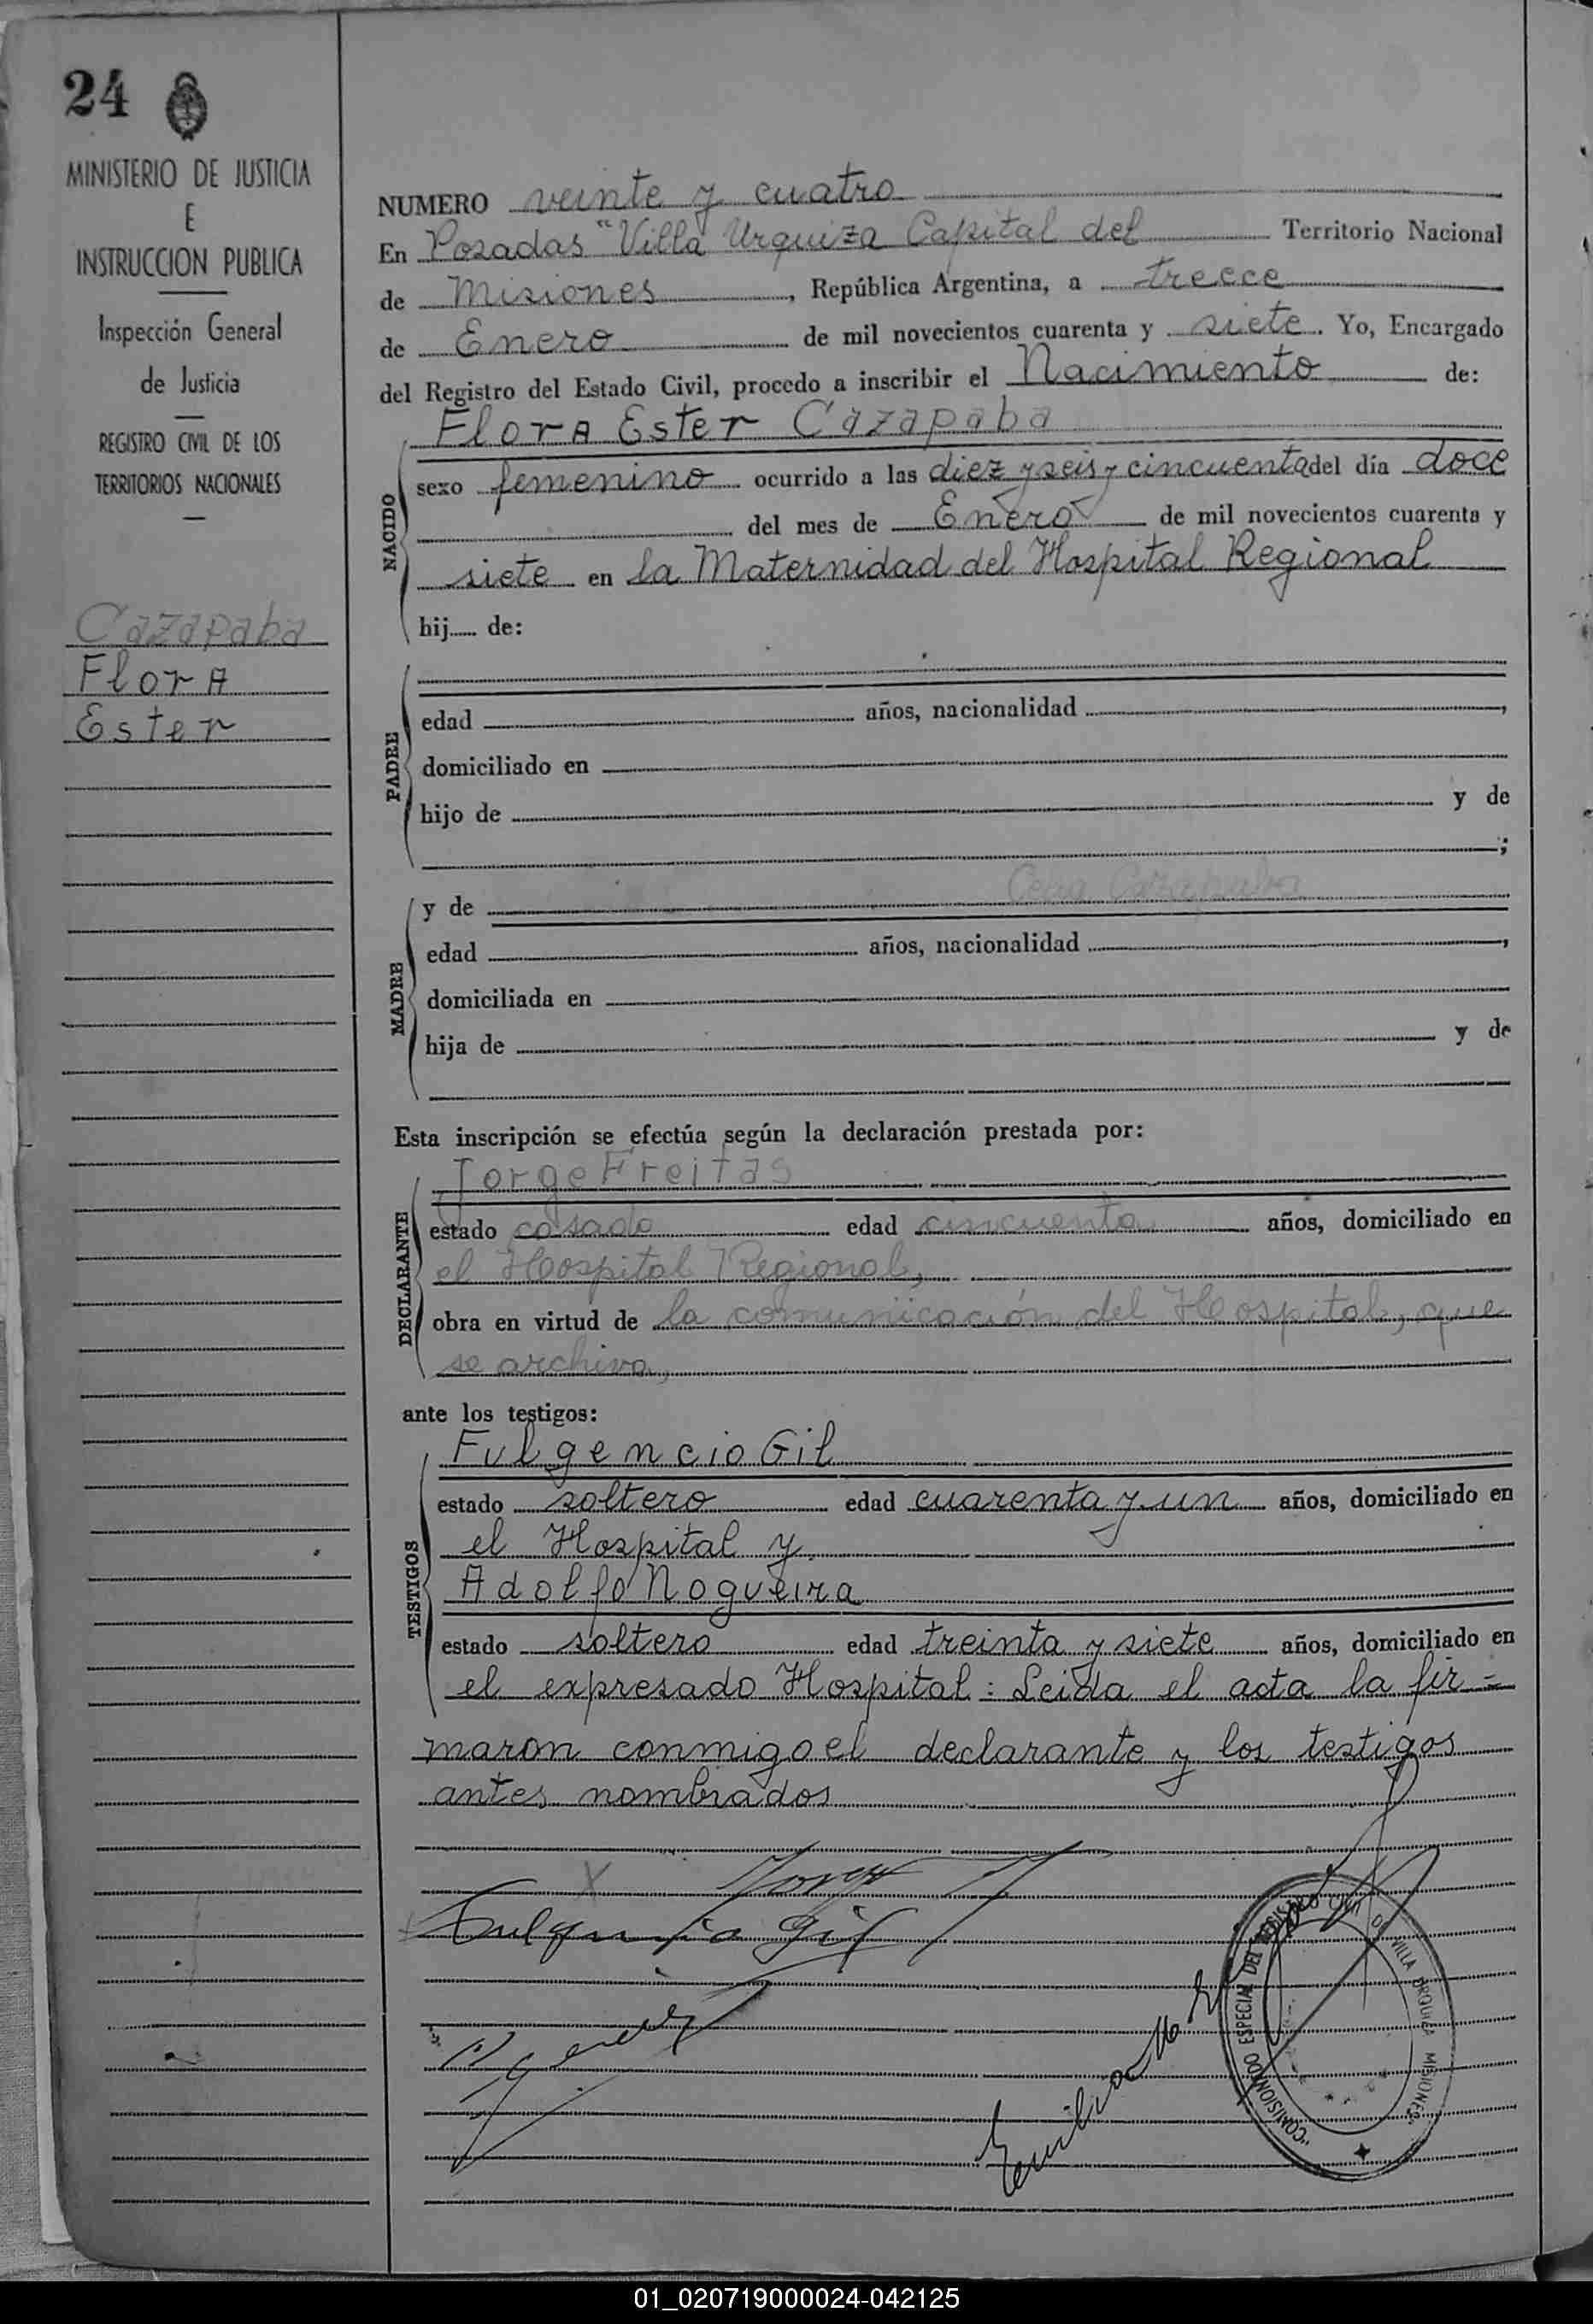 24
MINISTERIO DE JUSTICIA
E
INSTRUCCION PUBLICA
Inspección General
de Justicia
REGISTRO CIVIL DE LOS
TERRITORIOS NACIONALES
Cazapaba
Flora
Ester
NUMERO veinte y cuatro
En Posadas "Villa Urquiza Capital del Territorio Nacional
de Misiones, República Argentina, a trece
de Enero de mil novecientos cuarenta y siete. Yo, Encargado
del Registro del Estado Civil, procedo a inscribir el Nacimiento de:
Flora Ester Cazapaba
NACIDO
sexo femenino ocurrido a las diez y seis y cincuenta del día doce
del mes de Enero de mil novecientos cuarenta y
siete en la Maternidad del Hospital Regional
hij de:
PADRE
edad años, nacionalidad ,
domiciliado en
hijo de y de
;
MADRE
y de Cazapaba
edad años, nacionalidad ,
domiciliada en
hija de y de
Esta inscripción se efectúa según la declaración prestada por:
DECLARANTE
Jorge Freitas
estado casado edad cincuenta años, domiciliado en
el Hospital Regional,
obra en virtud de la comunicación del Hospital, que
se archiva,
ante los testigos:
TESTIGOS
Fulgencio Gil
estado soltero edad cuarenta y un años, domiciliado en
el Hospital y
Adolfo Nogueira
estado soltero edad treinta y siete años, domiciliado en
el expresado Hospital: Leida el acta la fir=
maron conmigo el declarante y los testigos
antes nombrados
Jorge
Fulgencio Gil
Emilio
"COMISIONADO ESPECIAL DEL REGISTRO CIVIL DE VILLA URQUIZA MISIONES"
01_020719000024-042125